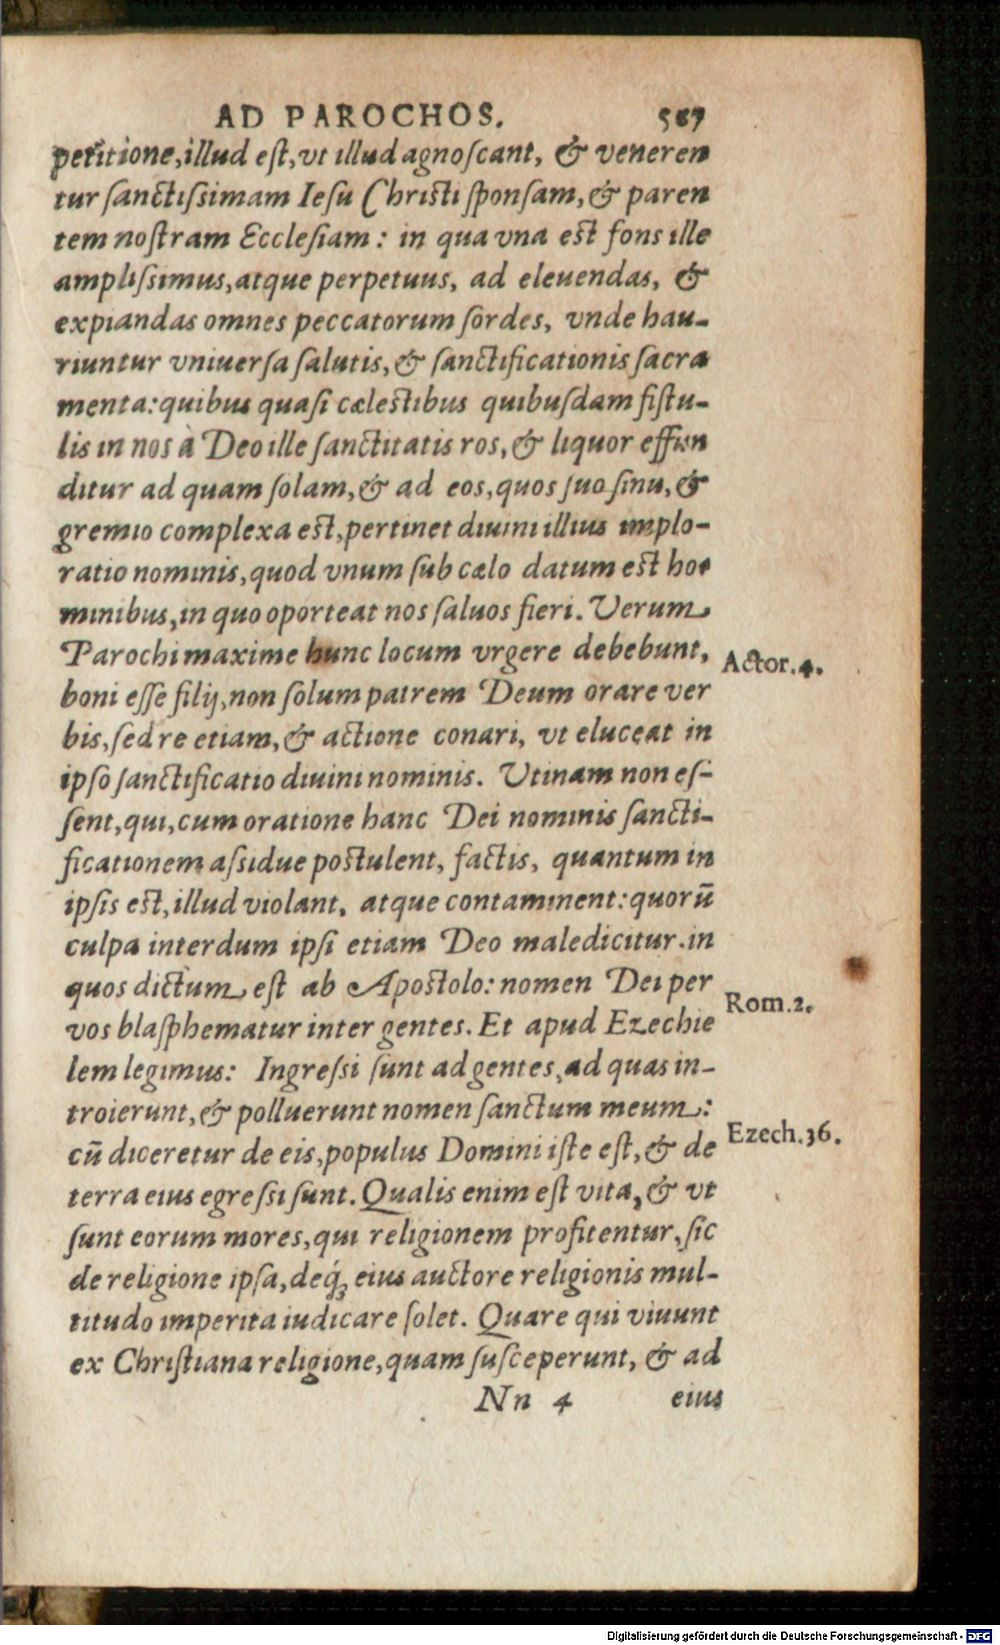 AD PAROCHOS. 567
petitione, illud eſt, vt illud agnoſcant, & veneren
tur ſanctiſsimam Ieſu Chriſti ſponſam, & paren
tem noſtram Eccleſiam: in qua vna eſt fons ille
ampliſsimus, atque perpetuus, ad eleuendas, &
expiandas omnes peccatorum ſordes, vnde hau-
riuntur vniuerſa ſalutis, & ſanctificationis ſacra
menta: quibus quaſi cæleſtibus quibuſdam fiſtu-
lis in nos à Deo ille ſanctitatis ros, & liquor effun
ditur ad quam ſolam, & ad eos, quos ſuo ſinu, &
gremio complexa eſt, pertinet diuini illius implo-
ratio nominis, quod vnum ſub cælo datum eſt ho-
minibus, in quo oporteat nos ſaluos fieri. Verum
Parochi maxime hunc locum vrgere debebunt,
Actor. 4.
boni eſſe filij, non ſolum patrem Deum orare ver
bis, ſed re etiam, & actione conari, vt eluceat in
ipſo ſanctificatio diuini nominis. Utinam non eſ-
ſent, qui, cum oratione hanc Dei nominis ſancti-
ficationem aſsidue poſtulent, factis, quantum in
ipſis eſt, illud violant, atque contaminent: quorū
culpa interdum ipſi etiam Deo maledicitur. in
quos dictum eſt ab Apoſtolo: nomen Dei per
Rom. 2.
vos blaſphematur inter gentes. Et apud Ezechie
lem legimus: Ingreſsi ſunt ad gentes, ad quas in-
troierunt, & polluerunt nomen ſanctum meum:
Ezech. 36.
cū diceretur de eis, populus Domini iſte eſt, & de
terra eius egreſsi ſunt. Qualis enim eſt vita, & vt
ſunt eorum mores, qui religionem profitentur, ſic
de religione ipſa, deq́; eius auctore religionis mul-
titudo imperita iudicare ſolet. Quare qui viuunt
ex Chriſtiana religione, quam ſuſceperunt, & ad
Nn 4 eius
Digitalisierung gefördert durch die Deutsche Forschungsgemeinschaft - DFG